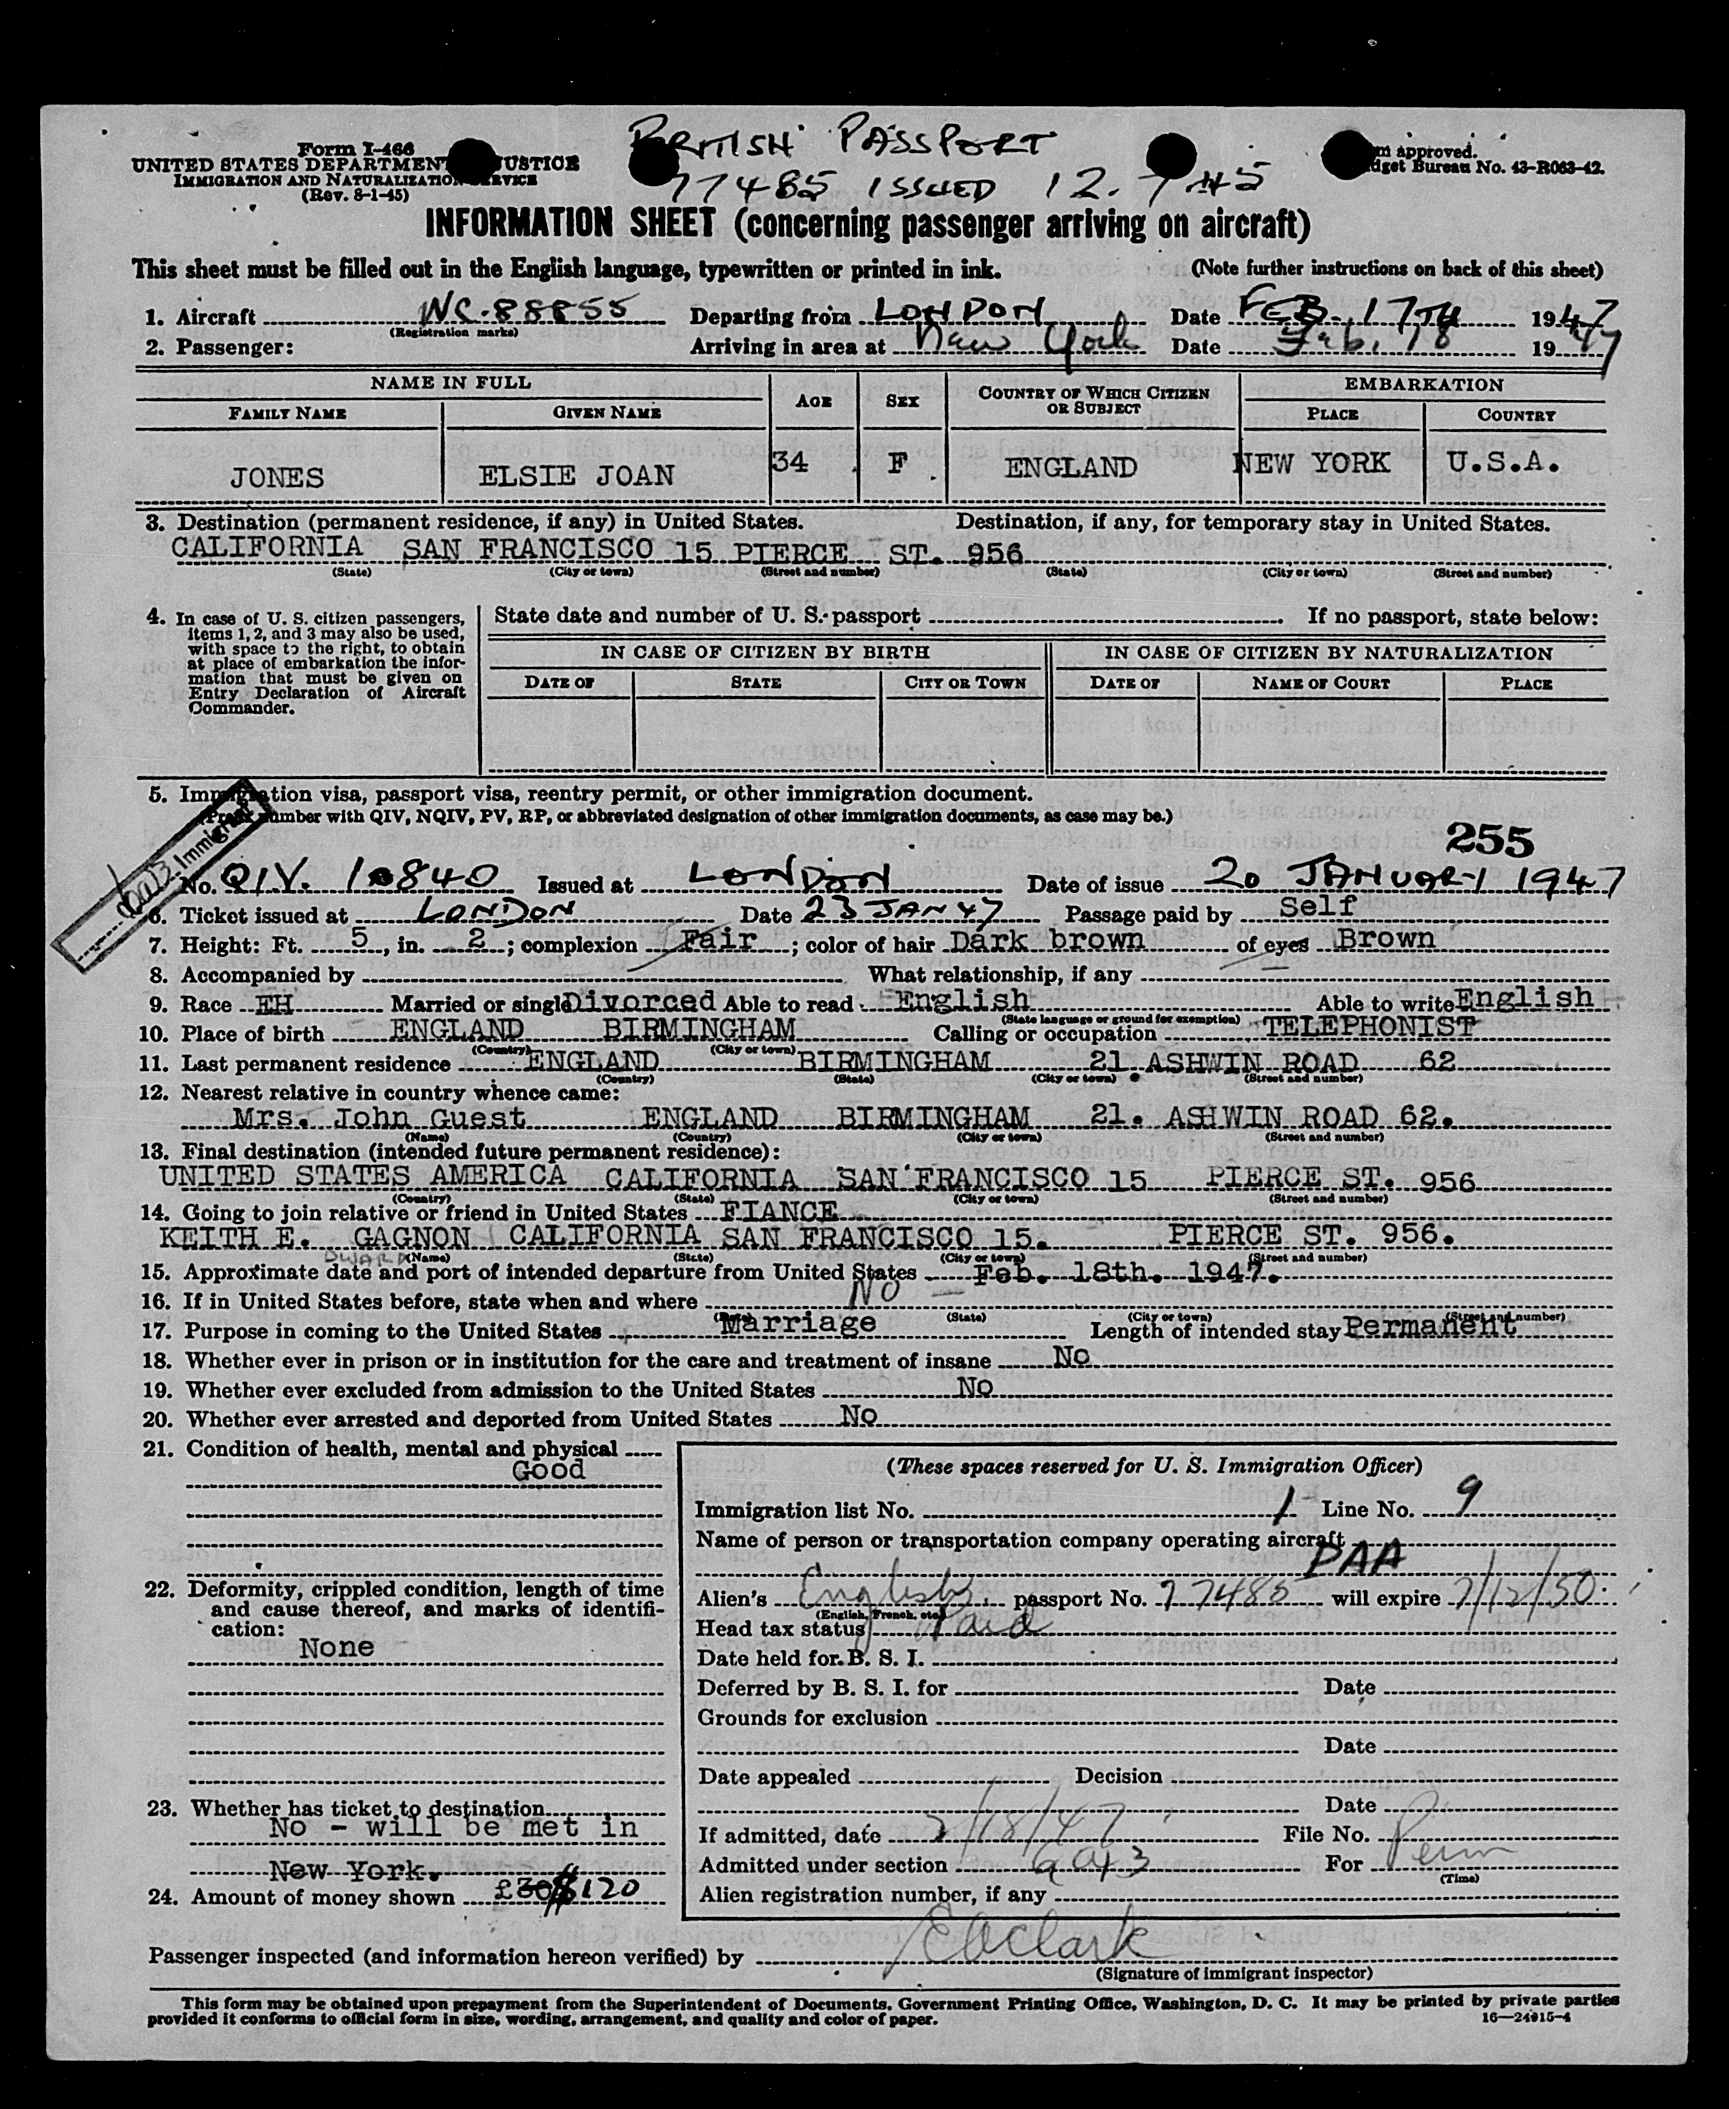 BRITISH PASSPORT
77485 ISSUED 12. 7 45
Form I-466
UNITED STATES DEPARTMENT JUSTICE
IMMIGRATION AND NATURALIZATION SERVICE
(Rev. 8-1-45)
m approved.
dget Bureau No. 43-R063-42.
INFORMATION SHEET (concerning passenger arriving on aircraft)
This sheet must be filled out in the English language, typewritten or printed in ink. (Note further instructions on back of this sheet)
1. Aircraft NC-88855 Departing from LONDON Date FEB. 17TH 1947
(Registration marks)
2. Passenger: Arriving in area at New York Date Feb. 18 1947
NAME IN FULL AGE SEX COUNTRY OF WHICH CITIZEN OR SUBJECT EMBARKATION
FAMILY NAME GIVEN NAME PLACE COUNTRY
JONES ELSIE JOAN 34 F ENGLAND NEW YORK U.S.A.
3. Destination (permanent residence, if any) in United States. Destination, if any, for temporary stay in United States.
CALIFORNIA SAN FRANCISCO 15 PIERCE ST. 956
(State) (City or town) (Street and number) (State) (City or town) (Street and number)
4. In case of U. S. citizen passengers, items 1, 2, and 3 may also be used, with space to the right, to obtain at place of embarkation the information that must be given on Entry Declaration of Aircraft Commander.
State date and number of U. S. passport . If no passport, state below:
IN CASE OF CITIZEN BY BIRTH IN CASE OF CITIZEN BY NATURALIZATION
DATE OF STATE CITY OR TOWN DATE OF NAME OF COURT PLACE
5. Immigration visa, passport visa, reentry permit, or other immigration document.
number with QIV, NQIV, PV, RP, or abbreviated designation of other immigration documents, as case may be.)
Immigrant
255
No. QIV. 10840 Issued at LONDON Date of issue 20 JANUARY 1947
6. Ticket issued at LONDON Date 23 JAN 47 Passage paid by Self
7. Height: Ft. 5, in. 2; complexion Fair; color of hair Dark brown of eyes Brown
8. Accompanied by What relationship, if any
9. Race EH Married or single Divorced Able to read English Able to write English
(State language or ground for exemption)
10. Place of birth ENGLAND BIRMINGHAM Calling or occupation TELEPHONIST
(Country) (City or town)
11. Last permanent residence ENGLAND BIRMINGHAM 21 ASHWIN ROAD 62
(Country) (State) (City or town) (Street and number)
12. Nearest relative in country whence came:
Mrs. John Guest ENGLAND BIRMINGHAM 21. ASHWIN ROAD 62.
(Name) (Country) (City or town) (Street and number)
13. Final destination (intended future permanent residence):
UNITED STATES AMERICA CALIFORNIA SAN FRANCISCO 15 PIERCE ST. 956
(Country) (State) (City or town) (Street and number)
14. Going to join relative or friend in United States FIANCE
KEITH E. GAGNON CALIFORNIA SAN FRANCISCO 15. PIERCE ST. 956.
DWARD (Name) (State) (City or town) (Street and number)
15. Approximate date and port of intended departure from United States Feb. 18th. 1947.
16. If in United States before, state when and where NO
(State) (City or town) (Street and number)
17. Purpose in coming to the United States Marriage Length of intended stay Permanent
18. Whether ever in prison or in institution for the care and treatment of insane No
19. Whether ever excluded from admission to the United States No
20. Whether ever arrested and deported from United States No
21. Condition of health, mental and physical
Good
22. Deformity, crippled condition, length of time and cause thereof, and marks of identification:
None
23. Whether has ticket to destination
No - will be met in
New York.
24. Amount of money shown £30 $120
(These spaces reserved for U. S. Immigration Officer)
Immigration list No. 1 Line No. 9
Name of person or transportation company operating aircraft
PAA
Alien's English passport No. 77485 will expire 7/12/50
(English, French, etc.)
Head tax status Paid
Date held for B. S. I.
Deferred by B. S. I. for Date
Grounds for exclusion
Date
Date appealed Decision
Date
If admitted, date 2/18/47 File No.
Admitted under section 6a3 For Perm
(Time)
Alien registration number, if any
Passenger inspected (and information hereon verified) by EOClark
(Signature of immigrant inspector)
This form may be obtained upon prepayment from the Superintendent of Documents, Government Printing Office, Washington, D. C. It may be printed by private parties
provided it conforms to official form in size, wording, arrangement, and quality and color of paper. 16—24915-4